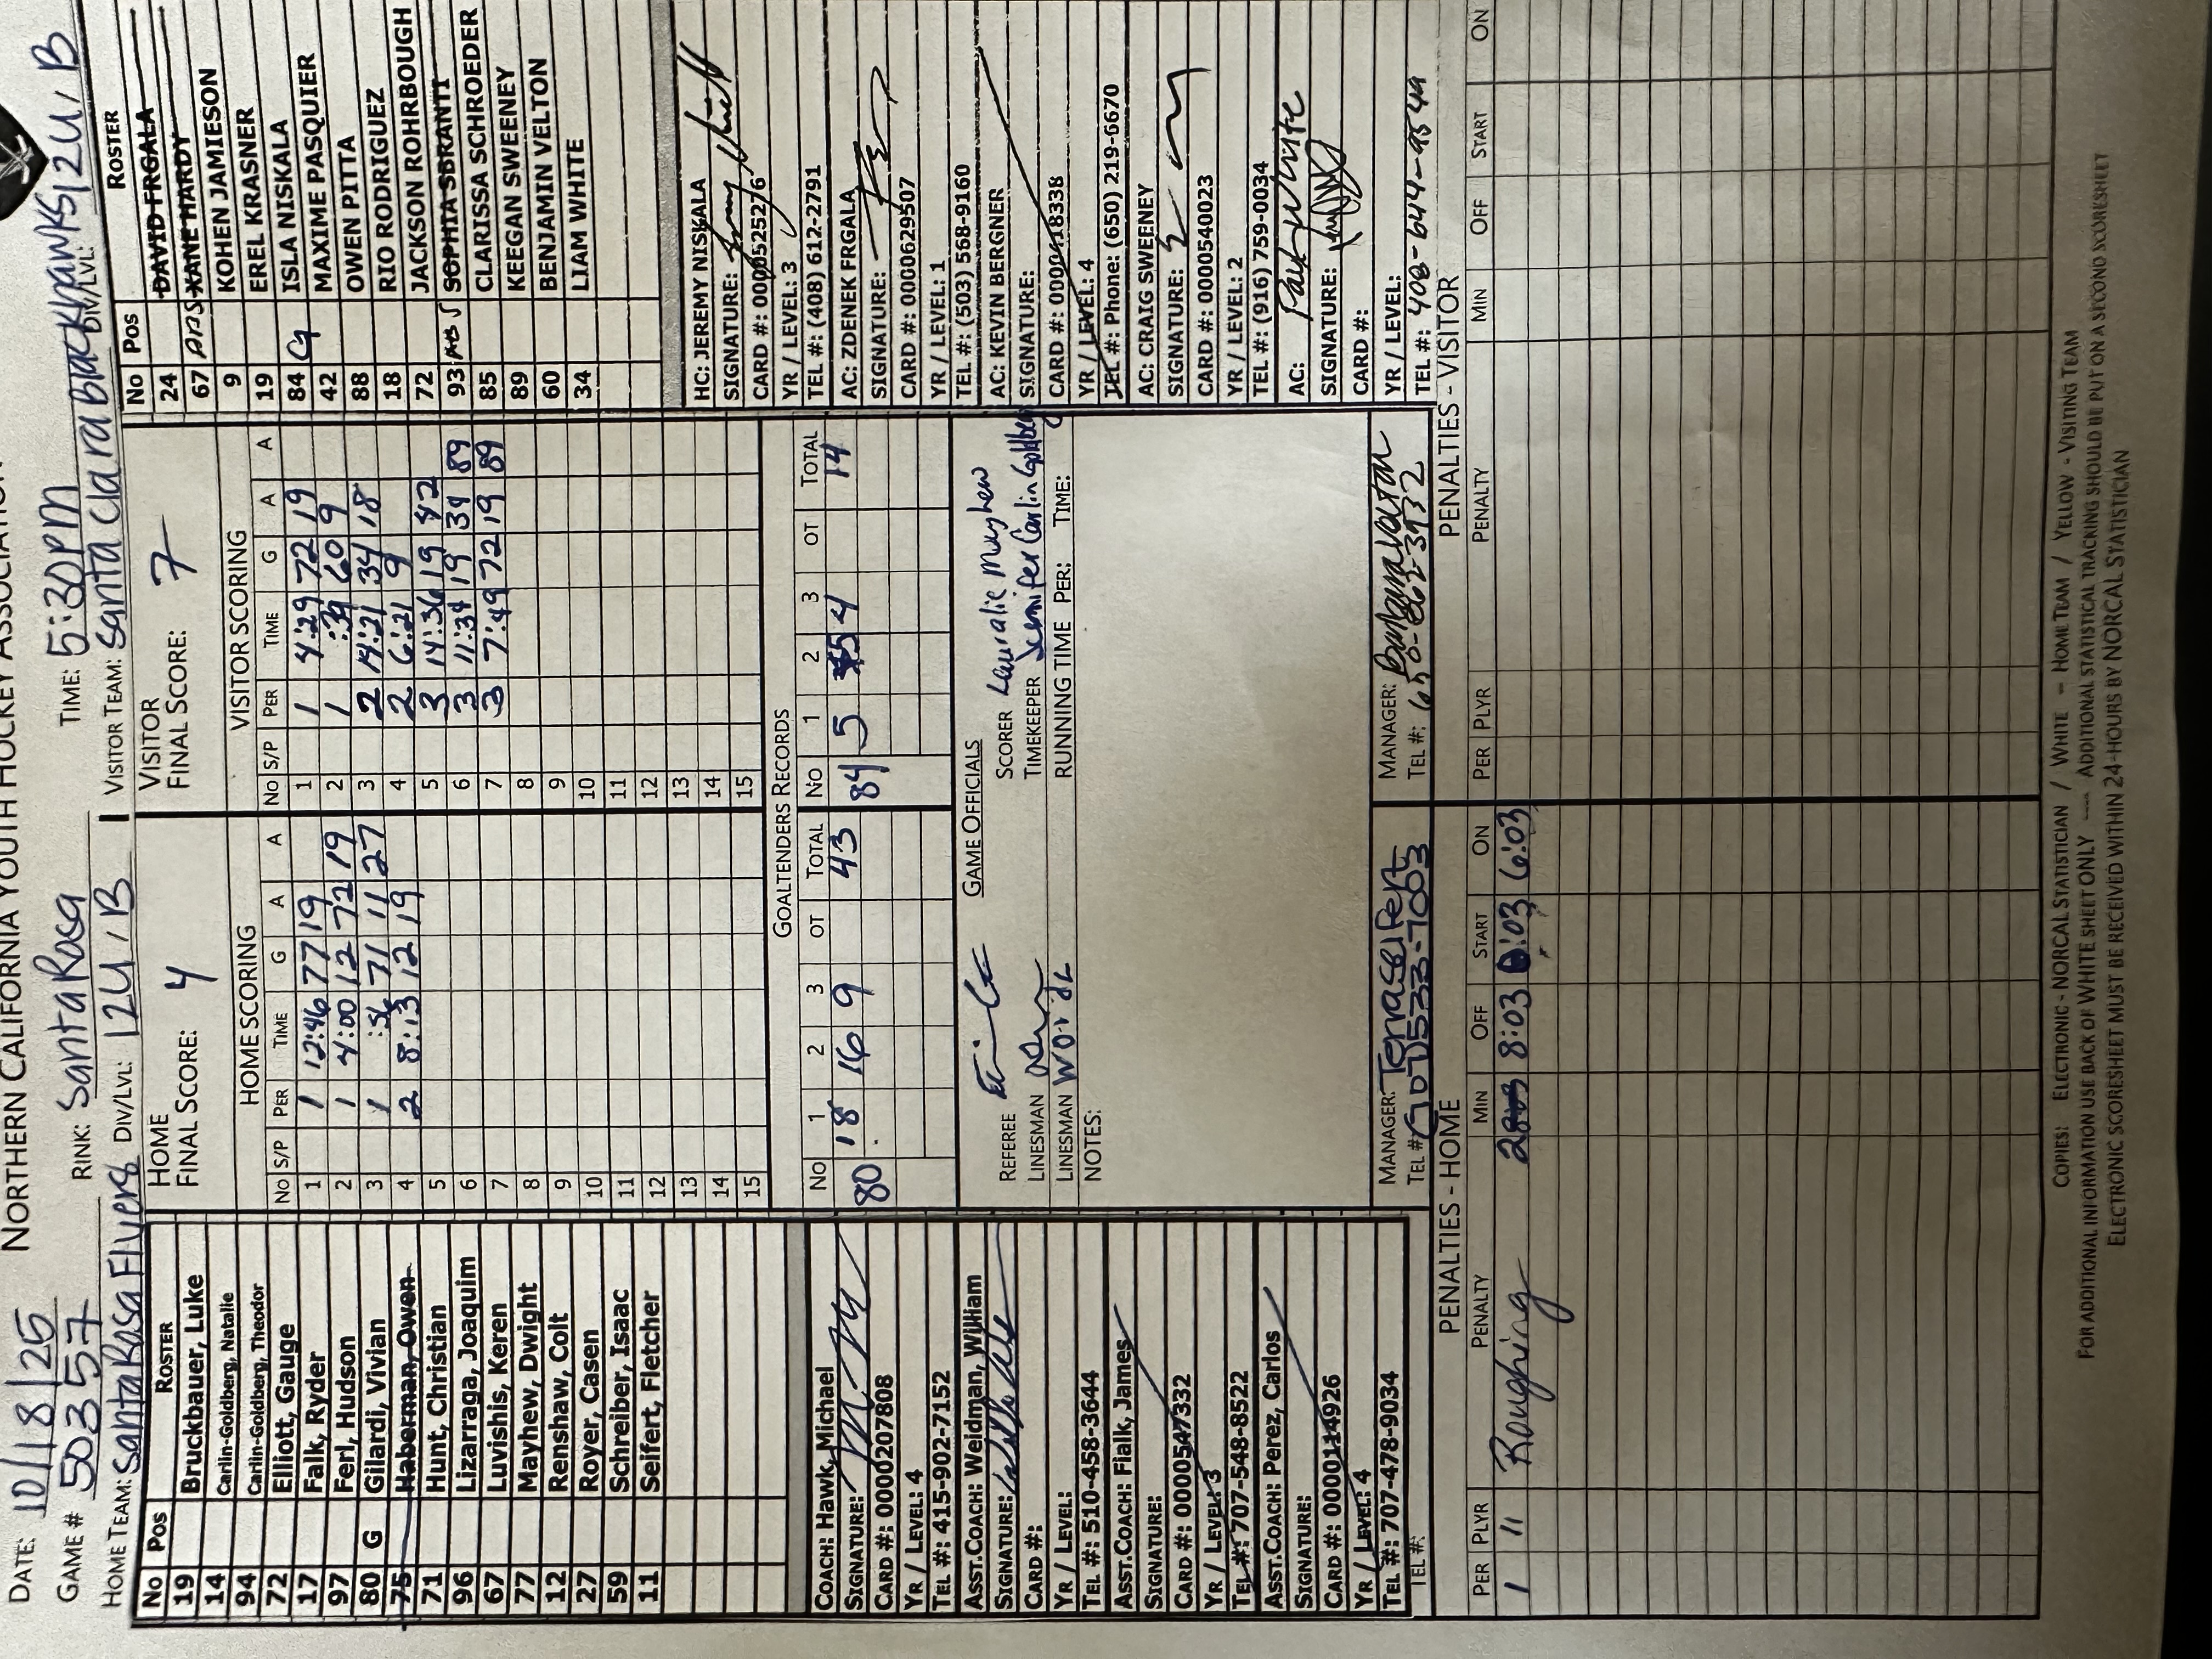 NORTHERN CALIFORNIA YOUTH HOCKEY ASSOCIATION
DATE: 10/18/25 RINK: Santa Rosa TIME: 5:30pm
GAME # 50357
HOME TEAM: Santa Rosa Flyers DIV/LVL: 12U, B VISITOR TEAM: Santa Clara Blackhawks DIV/LVL: 12U, B
No Pos ROSTER
19 Bruckbauer, Luke
14 Carlin-Goldberg, Natalie
94 Carlin-Goldberg, Theodor
72 Elliott, Gauge
17 Falk, Ryder
97 Ferl, Hudson
80 G Gilardi, Vivian
75 Haberman, Owen
71 Hunt, Christian
96 Lizarraga, Joaquim
67 Luvishis, Keren
77 Mayhew, Dwight
12 Renshaw, Colt
27 Royer, Casen
59 Schreiber, Isaac
11 Seifert, Fletcher
COACH: Hawk, Michael
SIGNATURE:
CARD #: 0000207808
YR / LEVEL: 4
TEL #: 415-902-7152
ASST.COACH: Weidman, William
SIGNATURE:
CARD #:
YR / LEVEL:
TEL #: 510-458-3644
ASST.COACH: Fialk, James
SIGNATURE:
CARD #: 0000547332
YR / LEVEL: 3
TEL #: 707-548-8522
ASST.COACH: Perez, Carlos
SIGNATURE:
CARD #: 0000114926
YR / LEVEL: 4
TEL #: 707-478-9034
TEL #:
HOME
FINAL SCORE: 4
HOME SCORING
No S/P PER TIME G A A
1 1 12:46 77 19
2 1 4:00 12 72 19
3 1 :56 71 11 27
4 2 8:13 12 19
5
6
7
8
9
10
11
12
13
14
15
VISITOR
FINAL SCORE: 7
VISITOR SCORING
No S/P PER TIME G A A
1 1 4:29 72 19
2 1 :39 60 9
3 2 14:21 34 18
4 2 6:21 9
5 3 14:36 19 42
6 3 11:34 19 34 89
7 3 7:49 72 19 89
8
9
10
11
12
13
14
15
GOALTENDERS RECORDS
No 1 2 3 OT TOTAL No 1 2 3 OT TOTAL
80 18 16 9 43 84 5 5 4 14
GAME OFFICIALS
REFEREE SCORER Lauralie Mayhew
LINESMAN TIMEKEEPER Jennifer Carlin Goldberg
LINESMAN RUNNING TIME PER: TIME:
NOTES:
MANAGER: Terra Seifert MANAGER:
TEL # (707) 533-7003 TEL #: 650-862-3932
No Pos ROSTER
24 DAVID FRGALA
67 ABS XANE HARDY
9 KOHEN JAMIESON
19 EREL KRASNER
84 G ISLA NISKALA
42 MAXIME PASQUIER
88 OWEN PITTA
18 RIO RODRIGUEZ
72 JACKSON ROHRBOUGH
93 ABS SOPHIA SBRANTI
85 CLARISSA SCHROEDER
89 KEEGAN SWEENEY
60 BENJAMIN VELTON
34 LIAM WHITE
HC: JEREMY NISKALA
SIGNATURE:
CARD #: 0000525276
YR / LEVEL: 3
TEL #: (408) 612-2791
AC: ZDENEK FRGALA
SIGNATURE:
CARD #: 0000629507
YR / LEVEL: 1
TEL #: (503) 568-9160
AC: KEVIN BERGNER
SIGNATURE:
CARD #: 0000418338
YR / LEVEL: 4
TEL #: Phone: (650) 219-6670
AC: CRAIG SWEENEY
SIGNATURE:
CARD #: 0000540023
YR / LEVEL: 2
TEL #: (916) 759-0034
AC: Paul White
SIGNATURE:
CARD #:
YR / LEVEL:
TEL #: 408-644-9549
PENALTIES - HOME PENALTIES - VISITOR
PER PLYR PENALTY MIN OFF START ON PER PLYR PENALTY MIN OFF START ON
1 11 Roughing 2 8:03 8:03 6:03
COPIES: ELECTRONIC - NORCAL STATISTICIAN / WHITE - HOME TEAM / YELLOW - VISITING TEAM
FOR ADDITIONAL INFORMATION USE BACK OF WHITE SHEET ONLY --- ADDITIONAL STATISTICAL TRACKING SHOULD BE PUT ON A SECOND SCORESHEET
ELECTRONIC SCORESHEET MUST BE RECEIVED WITHIN 24-HOURS BY NORCAL STATISTICIAN